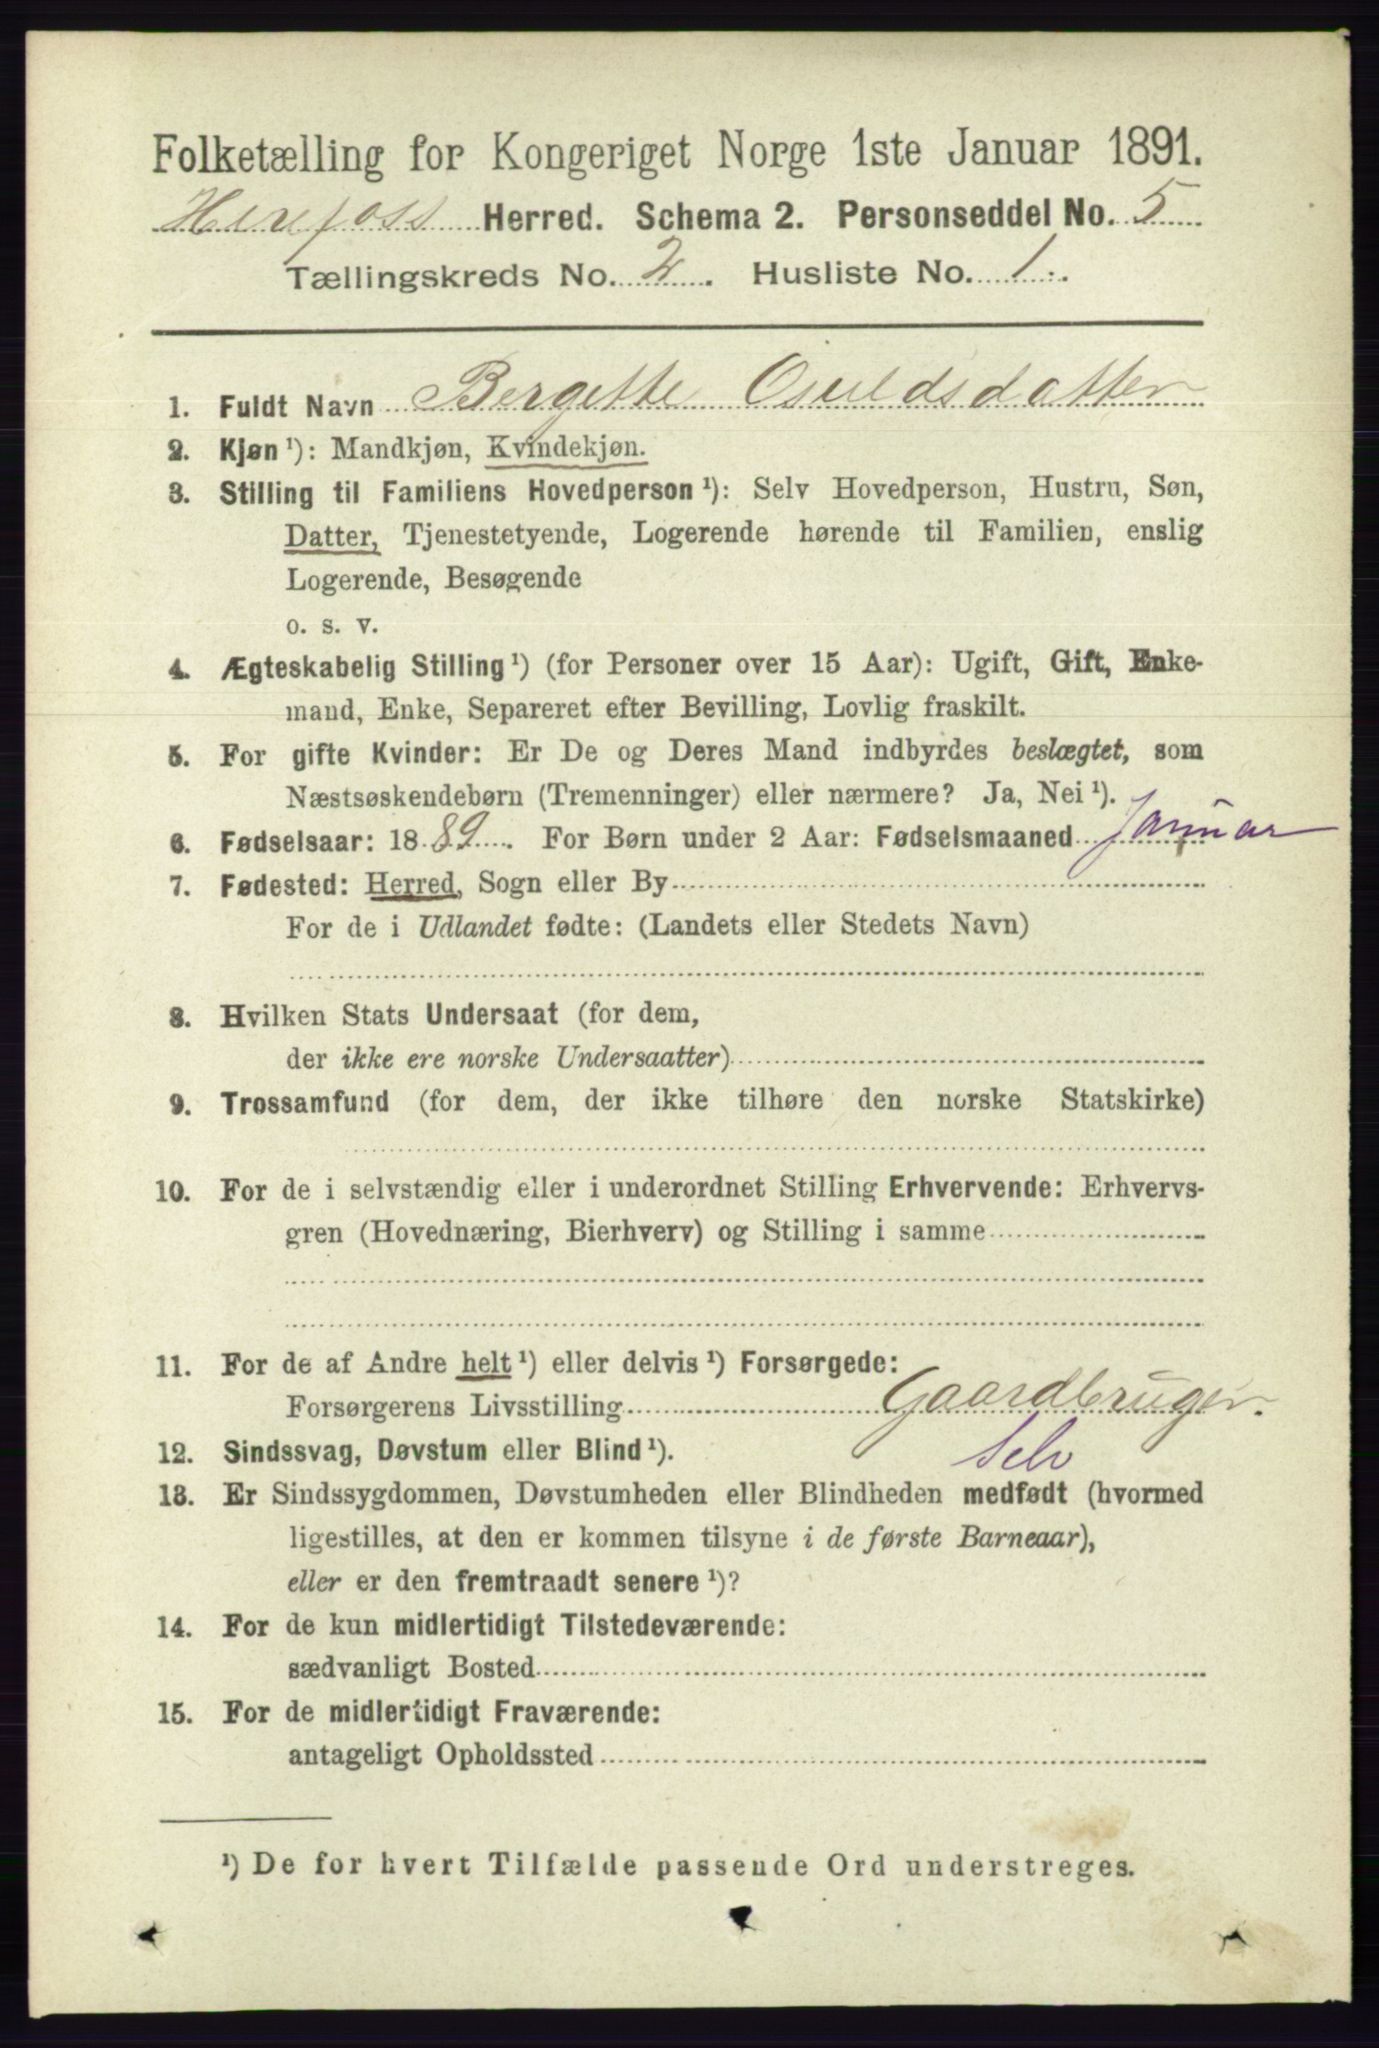 Folketælling for Kongeriget Norge 1ste Januar 1891.
Herefoss Herred. Schema 2. Personseddel No. 5
Tællingskreds No. 2. Husliste No. 1.
1. Fuldt Navn Bergitte Osuldsdatter
2. Kjøn ¹): Mandkjøn, Kvindekjøn.
3. Stilling til Familiens Hovedperson ¹): Selv Hovedperson, Hustru, Søn,
Datter, Tjenestetyende, Logerende hørende til Familien, enslig
Logerende, Besøgende
o. s. v.
4. Ægteskabelig Stilling ¹) (for Personer over 15 Aar): Ugift, Gift, Enke-
mand, Enke, Separeret efter Bevilling, Lovlig fraskilt.
5. For gifte Kvinder: Er De og Deres Mand indbyrdes beslægtet, som
Næstsøskendebørn (Tremenninger) eller nærmere? Ja, Nei ¹).
6. Fødselsaar: 1889. For Børn under 2 Aar: Fødselsmaaned Januar
7. Fødested: Herred, Sogn eller By
For de i Udlandet fødte: (Landets eller Stedets Navn)
8. Hvilken Stats Undersaat (for dem,
der ikke ere norske Undersaatter)
9. Trossamfund (for dem, der ikke tilhøre den norske Statskirke)
10. For de i selvstændig eller i underordnet Stilling Erhvervende: Erhvervs-
gren (Hovednæring, Bierhverv) og Stilling i samme
11. For de af Andre helt ¹) eller delvis ¹) Forsørgede:
Forsørgerens Livsstilling Gaardbruger.
12. Sindssvag, Døvstum eller Blind ¹). Selv
13. Er Sindssygdommen, Døvstumheden eller Blindheden medfødt (hvormed
ligestilles, at den er kommen tilsyne i de første Barneaar),
eller er den fremtraadt senere ¹)?
14. For de kun midlertidigt Tilstedeværende:
sædvanligt Bosted
15. For de midlertidigt Fraværende:
antageligt Opholdssted
¹) De for hvert Tilfælde passende Ord understreges.